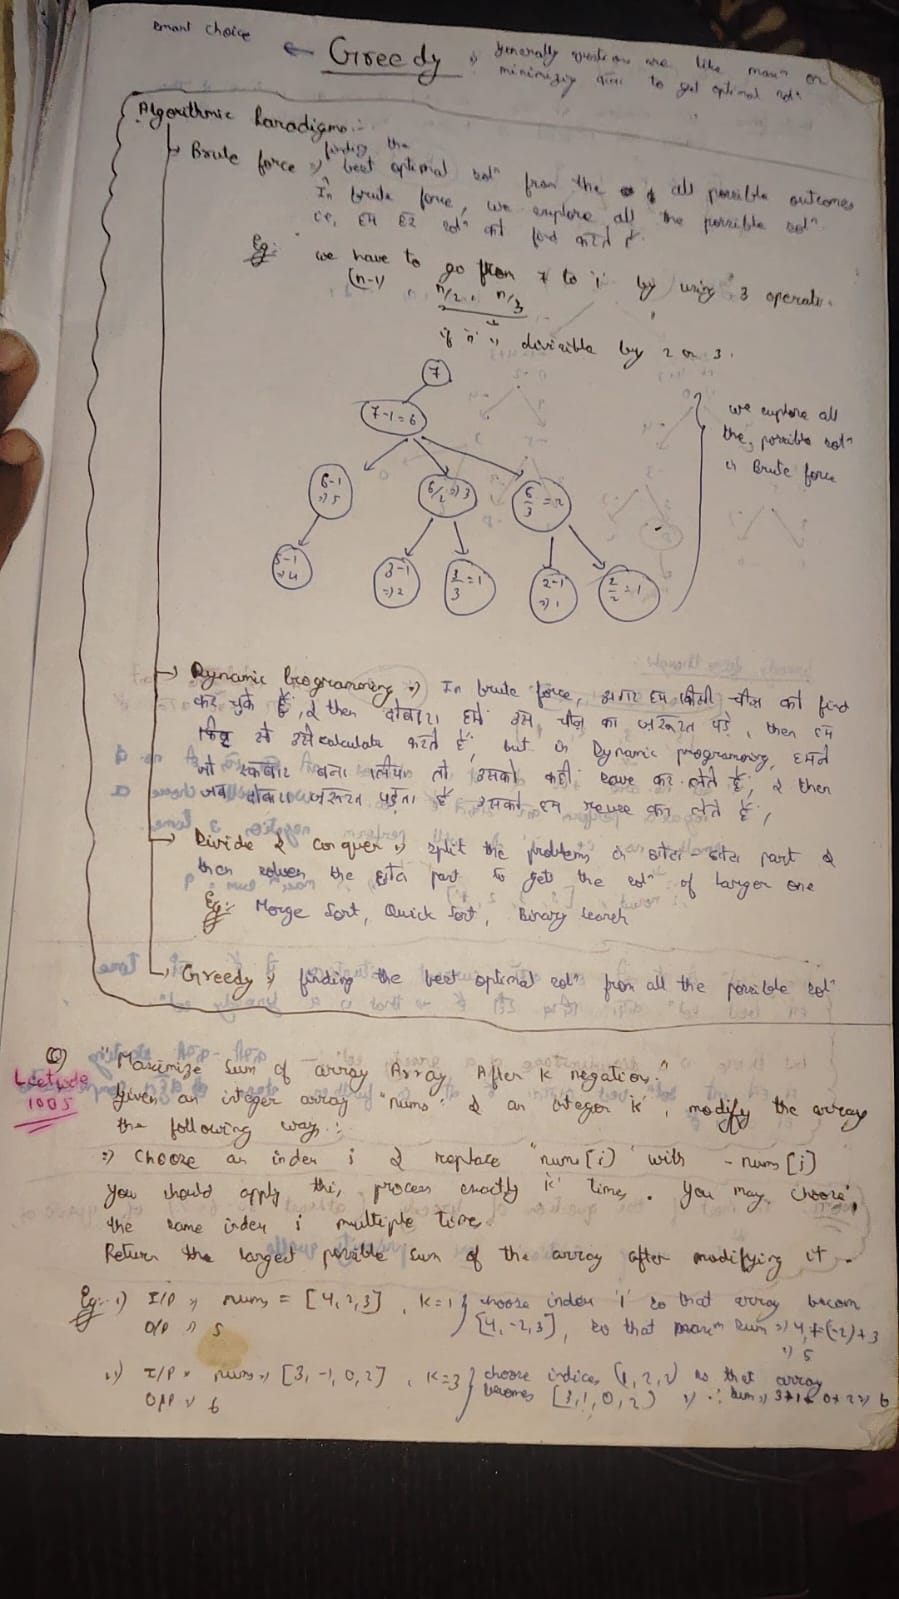 smart choice ← Greedy ⇒ generally questions are like maxⁿ or
minimizing to get optimal solⁿ
Algorithmic Paradigms:-
→ Brute force ⇒ finding the best optimal solⁿ from the all possible outcomes
In brute force, we explore all the possible solⁿ
i.e, हम हर solⁿ को find करते हैं.
Eg: we have to go from 7 to 1 by using 3 operatⁿ.
(n-1), n/2, n/3
if 'n' is divisible by 2 or 3.
7
7-1=6
6-1 ⇒5
6/2 ⇒3
6/3 = 2
5-1 ⇒4
3-1 ⇒2
3/3 = 1
2-1 ⇒1
2/2 = 1
we explore all
the possible solⁿ
is Brute force
→ Dynamic Programming ⇒ In brute force, अगर हम किसी चीज को find
कर चुके हैं, & then दोबारा हमें उस चीज का जरूरत पड़े, then हम
फिर से उसे calculate करते हैं, but in Dynamic programming, हमने
जो एकबार बना लिया तो उसको कहीं save कर लेते हैं, & then
जब दोबारा जरूरत पड़ता है उसको हम reuse कर लेते हैं,
→ Divide & conquer ⇒ split the problems in छोटा-छोटा part &
then solves the छोटा part to gets the solⁿ of larger one
Eg:- Merge Sort, Quick Sort, Binary Search
→ Greedy ⇒ finding the best optimal solⁿ from all the possible solⁿ
Q) "Maximize Sum of array Array After K negation:"
Leetcode
1005
Given an integer array "nums" & an integer 'K', modify the array
the following way:
⇒ Choose an index i & replace "nums[i]" with -nums[i]
You should apply this process exactly 'K' times. You may choose
the same index i multiple time.
Return the largest possible sum of the array after modifying it.
Eg:- i) I/P ⇒ nums = [4,2,3], K=1 } choose index '1' so that array becom
O/P ⇒ 5 [4,-2,3], so that maxm sum ⇒ 4+(-2)+3
⇒ 5
ii) I/P ⇒ nums ⇒ [3,-1,0,2], K=3 } choose indices (1,2,2) so that array
O/P ⇒ 6 becomes [3,1,0,2) ⇒ ∴ sum ⇒ 3+1+0+2 ⇒ 6